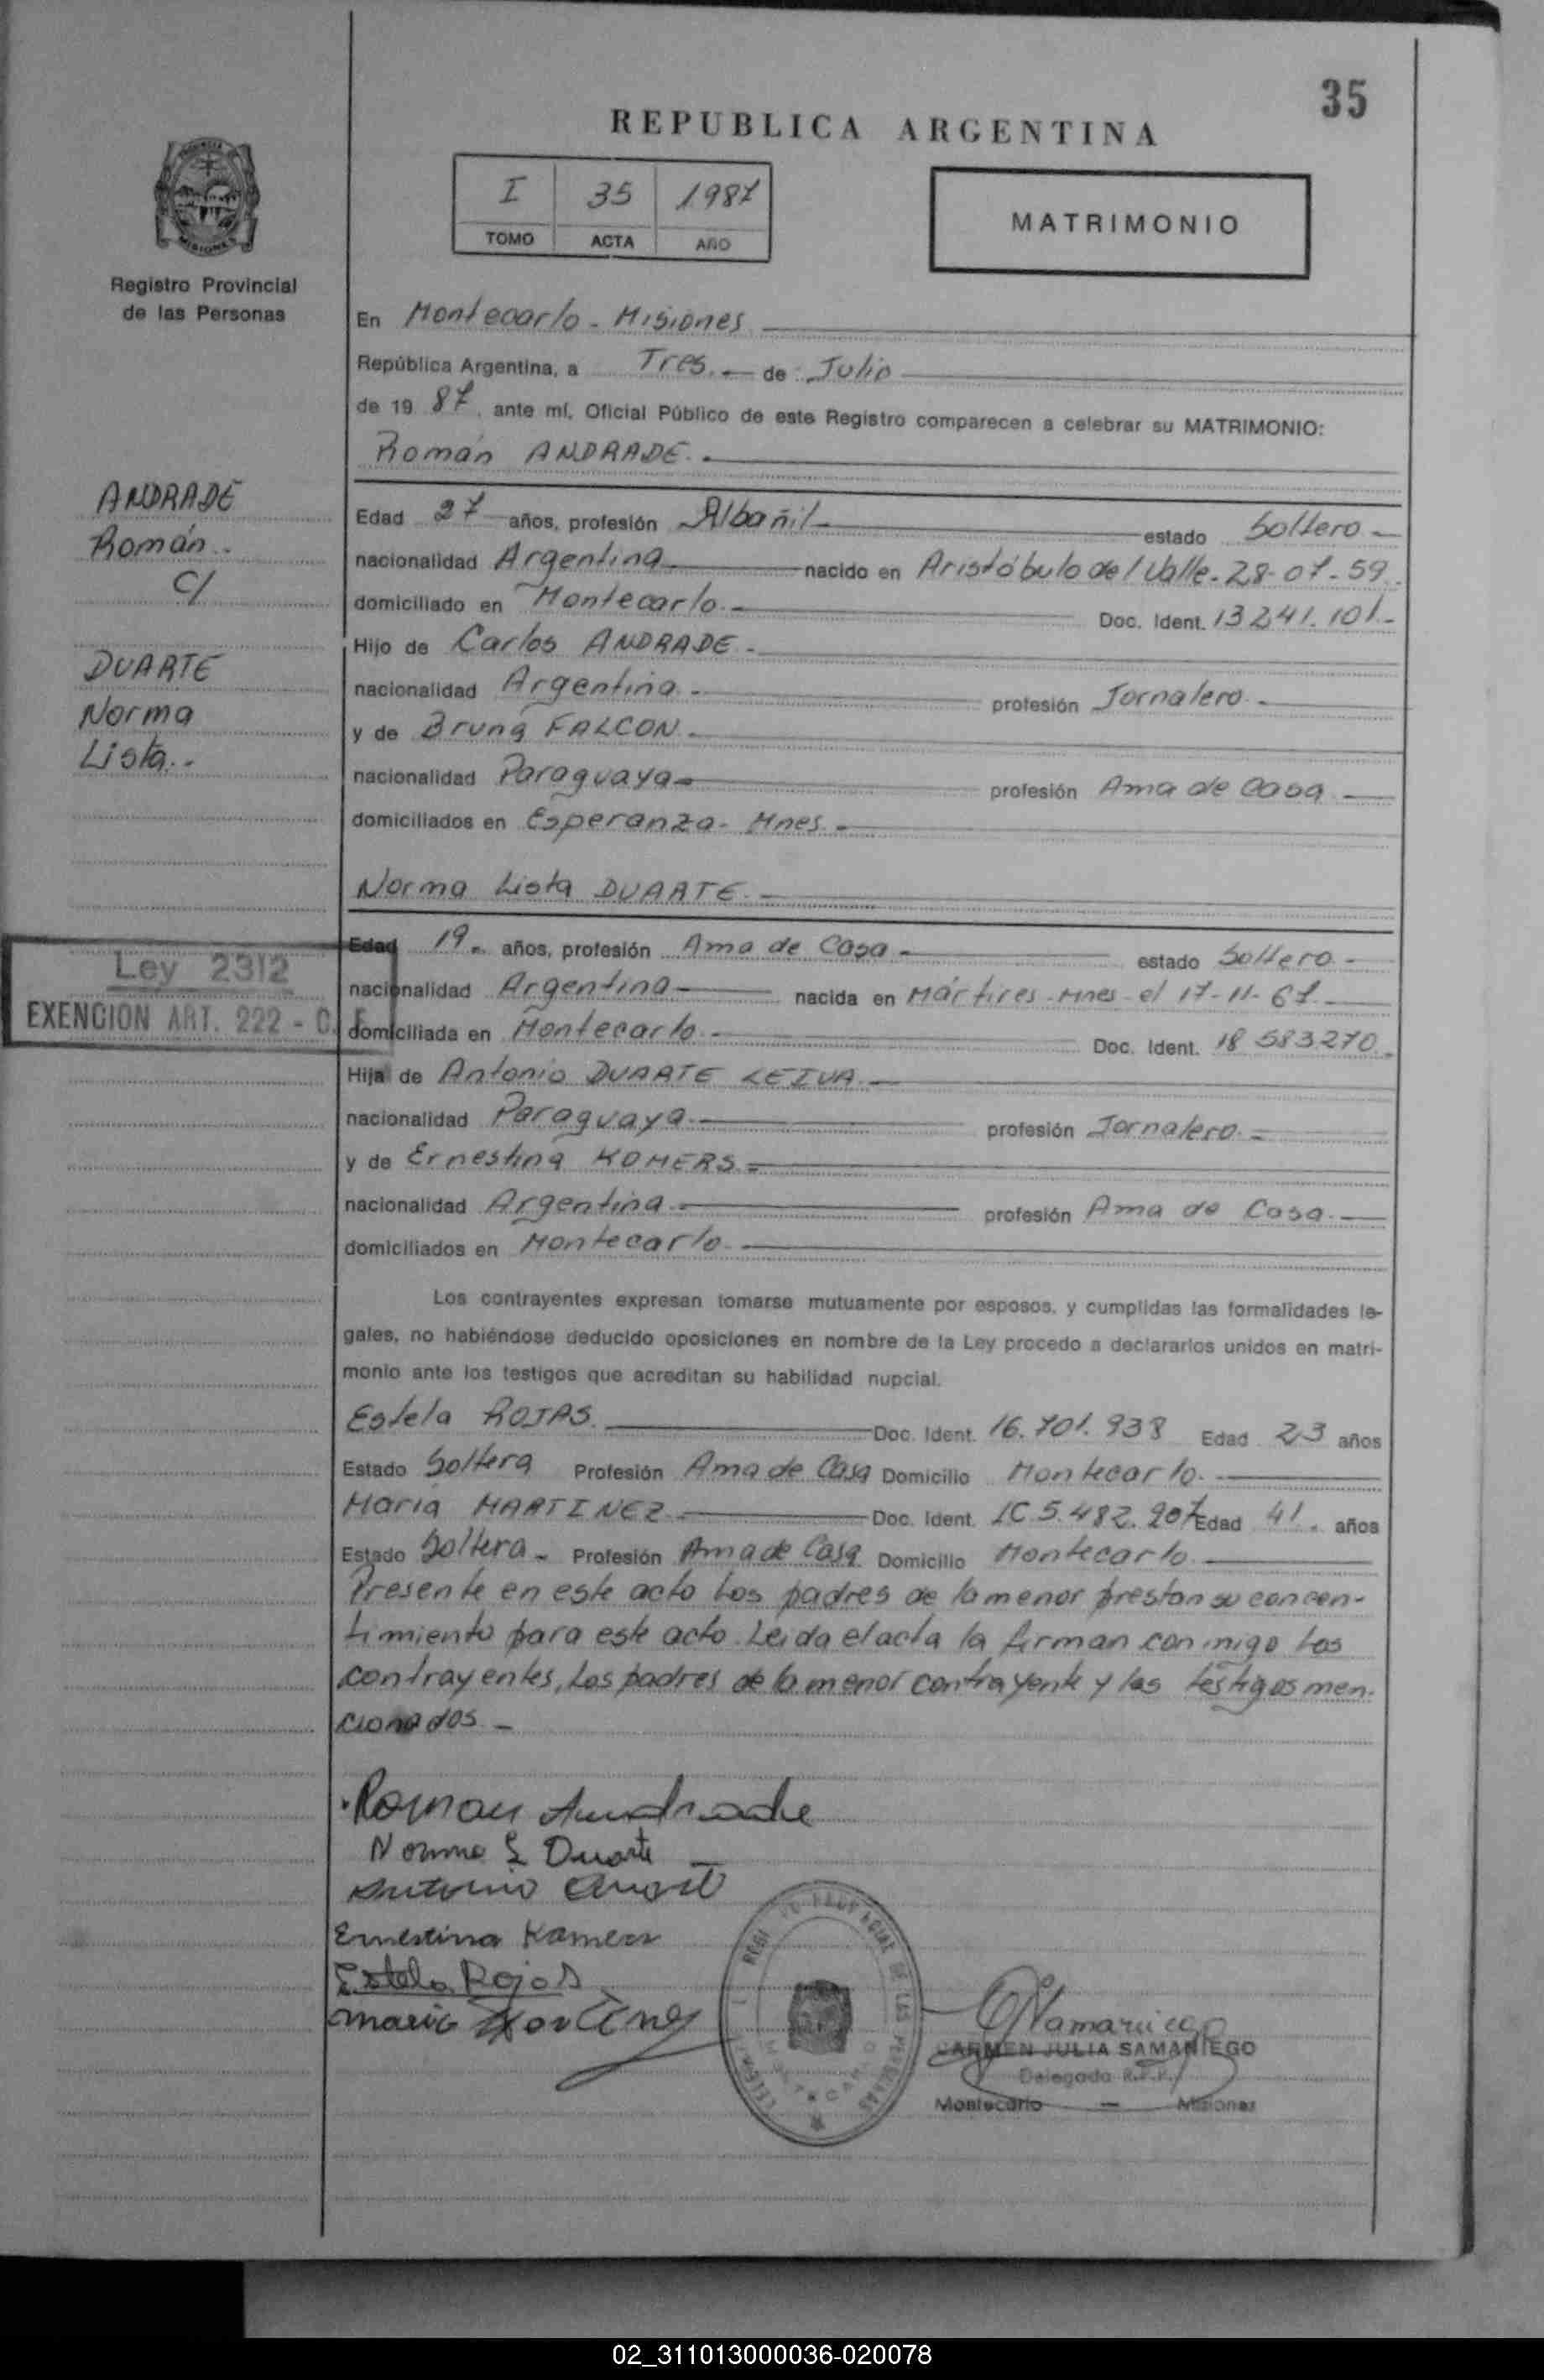 35
REPUBLICA ARGENTINA
I 35 1987
TOMO ACTA AÑO
MATRIMONIO
PROVINCIA
MISIONES
Registro Provincial
de las Personas
En Montecarlo - Misiones
República Argentina, a Tres.- de Julio
de 19 87, ante mí, Oficial Público de este Registro comparecen a celebrar su MATRIMONIO:
Román ANDRADE.-
ANDRADE
Román.-
C/
DUARTE
Norma
Lista.-
Edad 27 años, profesión Albañil estado Soltero-
nacionalidad Argentina nacido en Aristóbulo del Valle-28-07-59.
domiciliado en Montecarlo.- Doc. Ident. 13241.101.-
Hijo de Carlos ANDRADE-
nacionalidad Argentina.- profesión Jornalero.-
y de Bruna FALCON.-
nacionalidad Paraguaya- profesión Ama de Casa-
domiciliados en Esperanza- Mnes.-
Norma Lista DUARTE.-
Edad 19- años, profesión Ama de Casa- estado Soltero-
Ley 2312
EXENCION ART. 222 - C. F.
nacionalidad Argentina- nacida en Mártires-Mnes-el 17-11-67.-
domiciliada en Montecarlo.- Doc. Ident. 18 583270.-
Hija de Antonio DUARTE LEIVA.-
nacionalidad Paraguaya- profesión Jornalero.-
y de Ernestina KOMERS.-
nacionalidad Argentina.- profesión Ama de Casa.-
domiciliados en Montecarlo.-
Los contrayentes expresan tomarse mutuamente por esposos, y cumplidas las formalidades le-
gales, no habiéndose deducido oposiciones en nombre de la Ley procedo a declararlos unidos en matri-
monio ante los testigos que acreditan su habilidad nupcial.
Estela ROJAS. Doc. Ident. 16.701.938 Edad 23 años
Estado Soltera Profesión Ama de Casa Domicilio Montecarlo.-
Maria MARTINEZ.- Doc. Ident. LC 5.482.207 Edad 41. años
Estado Soltera- Profesión Ama de Casa Domicilio Montecarlo
Presente en este acto Los padres de la menor prestan su concen-
timiento para este acto. Leida el acta la firman conmigo Los
contrayentes, Los padres de la menor contrayente y los testigos men-
cionados-
Roman Andrade
Norma L Duarte
Antonio
Ernestina Kamers
Estela Rojas
Maria Martinez
CARMEN JULIA SAMANIEGO
Delegada R.P.P.
Montecarlo - Misiones
02_311013000036-020078